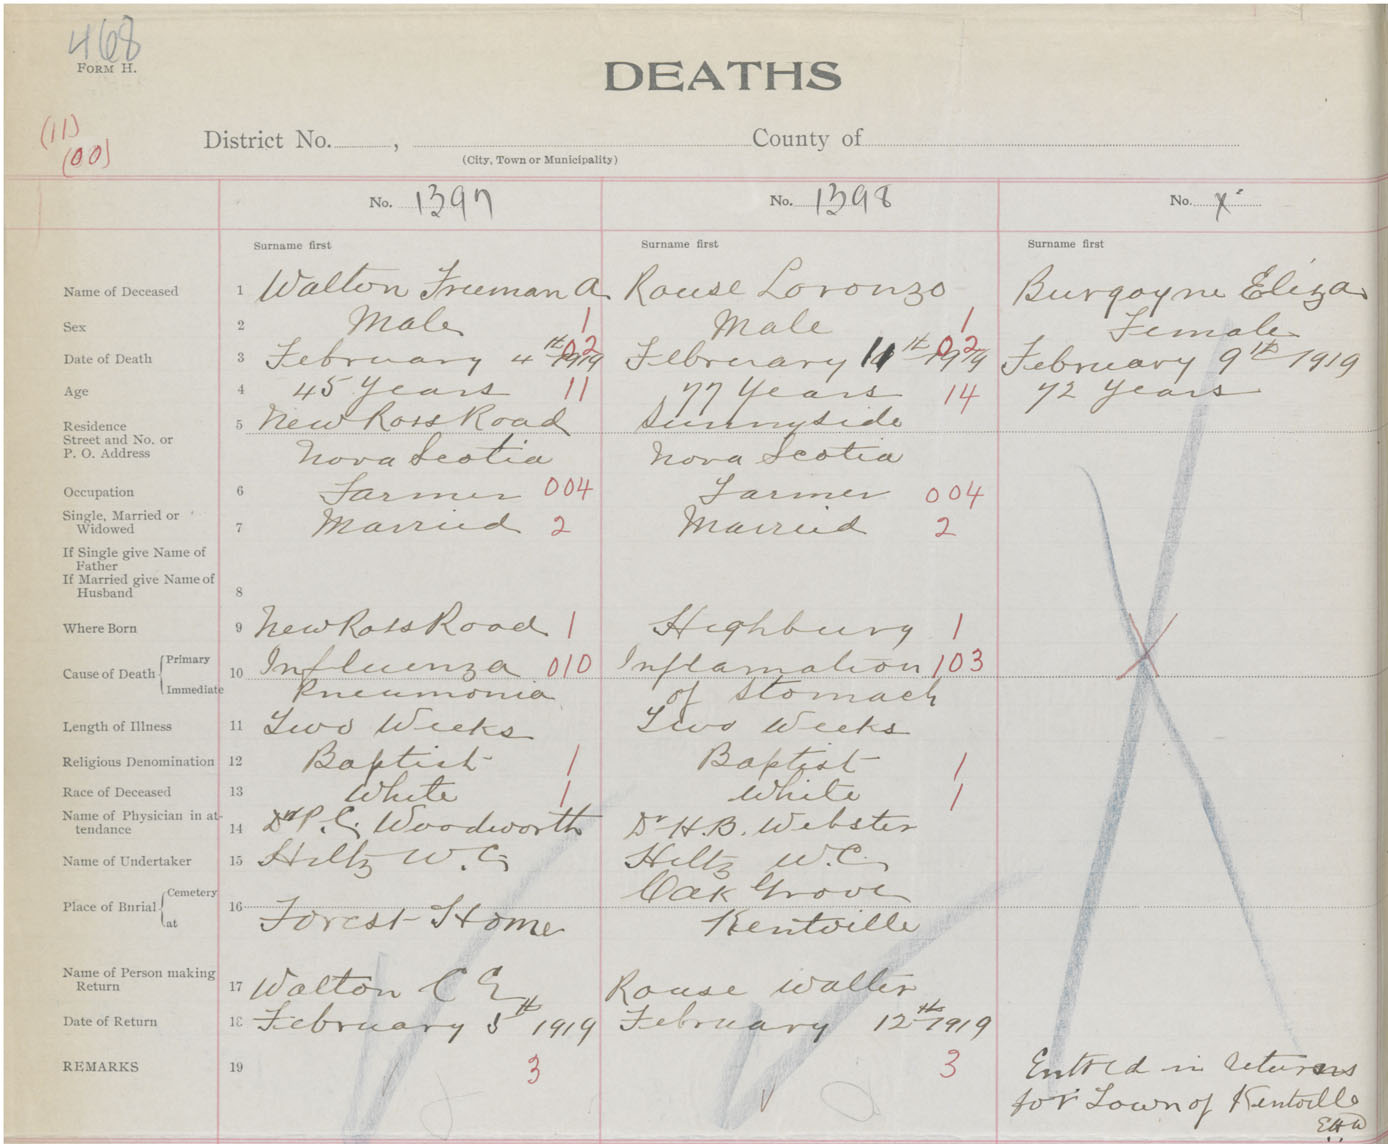 468
FORM H.
DEATHS
(11)
(00)
District No. , County of
(City, Town or Municipality)
No. 1397 No. 1398 No. x
Surname first Surname first Surname first
Name of Deceased 1 Walton Freeman A Rouse Loronzo Burgoyne Eliza
Sex 2 Male 1 Male 1 Female
Date of Death 3 February 4th 1919 02 February 11th 1919 02 February 9th 1919
Age 4 45 Years 11 77 Years 14 72 Years
Residence 5 New Ross Road Sunnyside
Street and No. or
P. O. Address Nova Scotia Nova Scotia
Occupation 6 Farmer 004 Farmer 004
Single, Married or
Widowed 7 Married 2 Married 2
If Single give Name of
Father
If Married give Name of
Husband 8
Where Born 9 New Ross Road 1 Highbury 1
Cause of Death { Primary 10 Influenza 010 Inflamation 103
Immediate Pneumonia of Stomach
Length of Illness 11 Two Weeks Two Weeks
Religious Denomination 12 Baptist 1 Baptist 1
Race of Deceased 13 White 1 White 1
Name of Physician in at-
tendance 14 Dr P. C. Woodworth Dr H. B. Webster
Name of Undertaker 15 Hiltz W. C. Hiltz W. C.
Place of Bnrial { Cemetery 16 Oak Grove
at Forest Home Kentville
Name of Person making
Return 17 Walton C E Rouse Walter
Date of Return 18 February 5th 1919 February 12th 1919
REMARKS 19 3 3 Entred in returns
for Town of Kentville